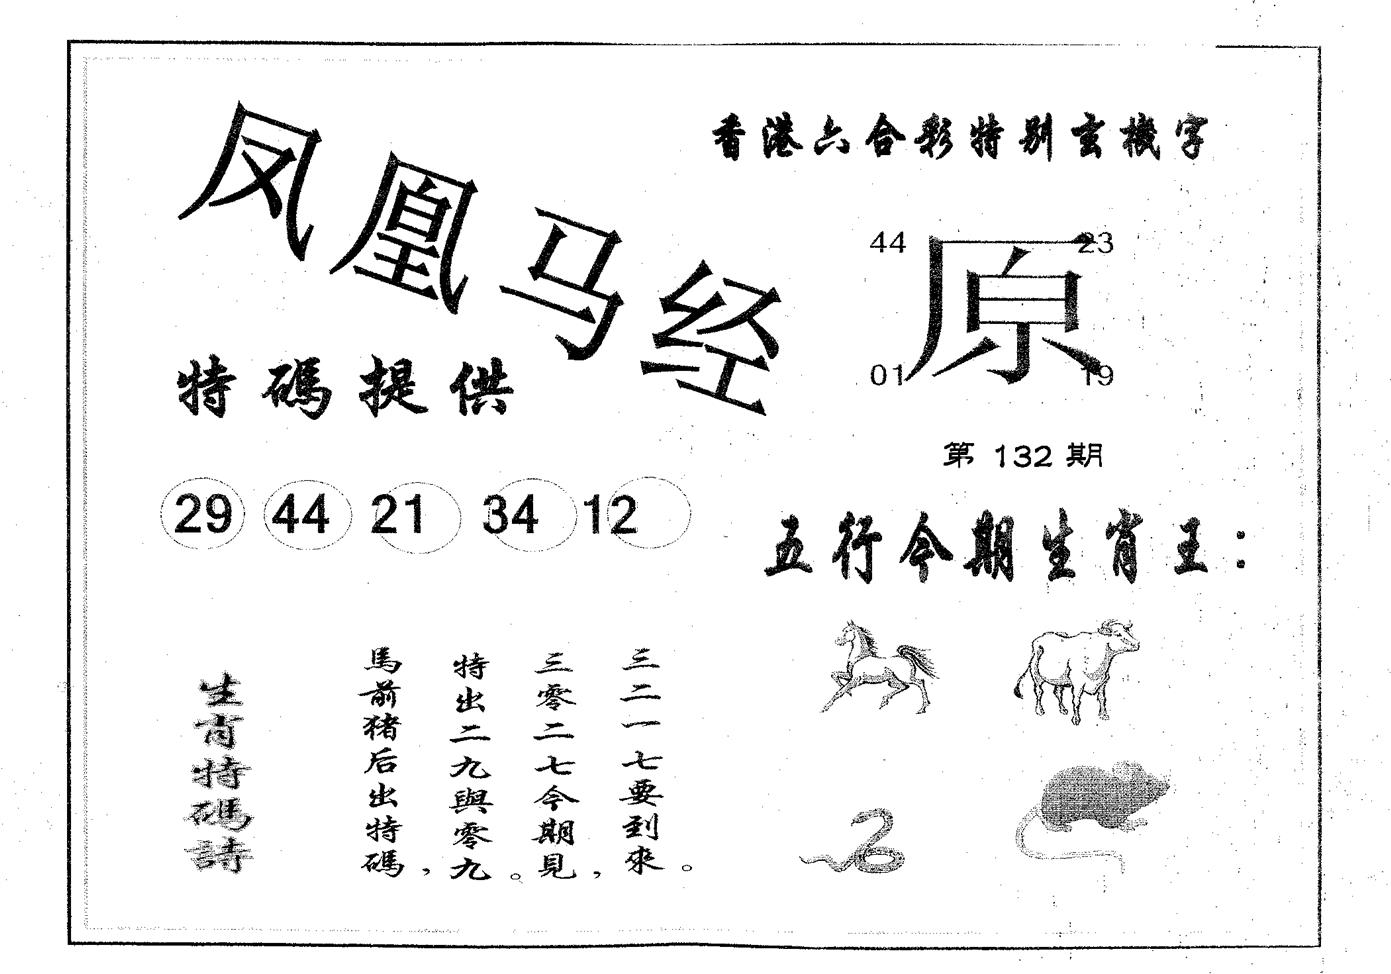 凤凰马经
香港六合彩特别玄機字
44 23
原
01 19
第 132 期
特碼提供
29 44 21 34 12
五行今期生肖王：
生肖特碼詩
馬前猪后出特碼，
特出二九與零九。
三零二七今期見，
三二一七要到來。